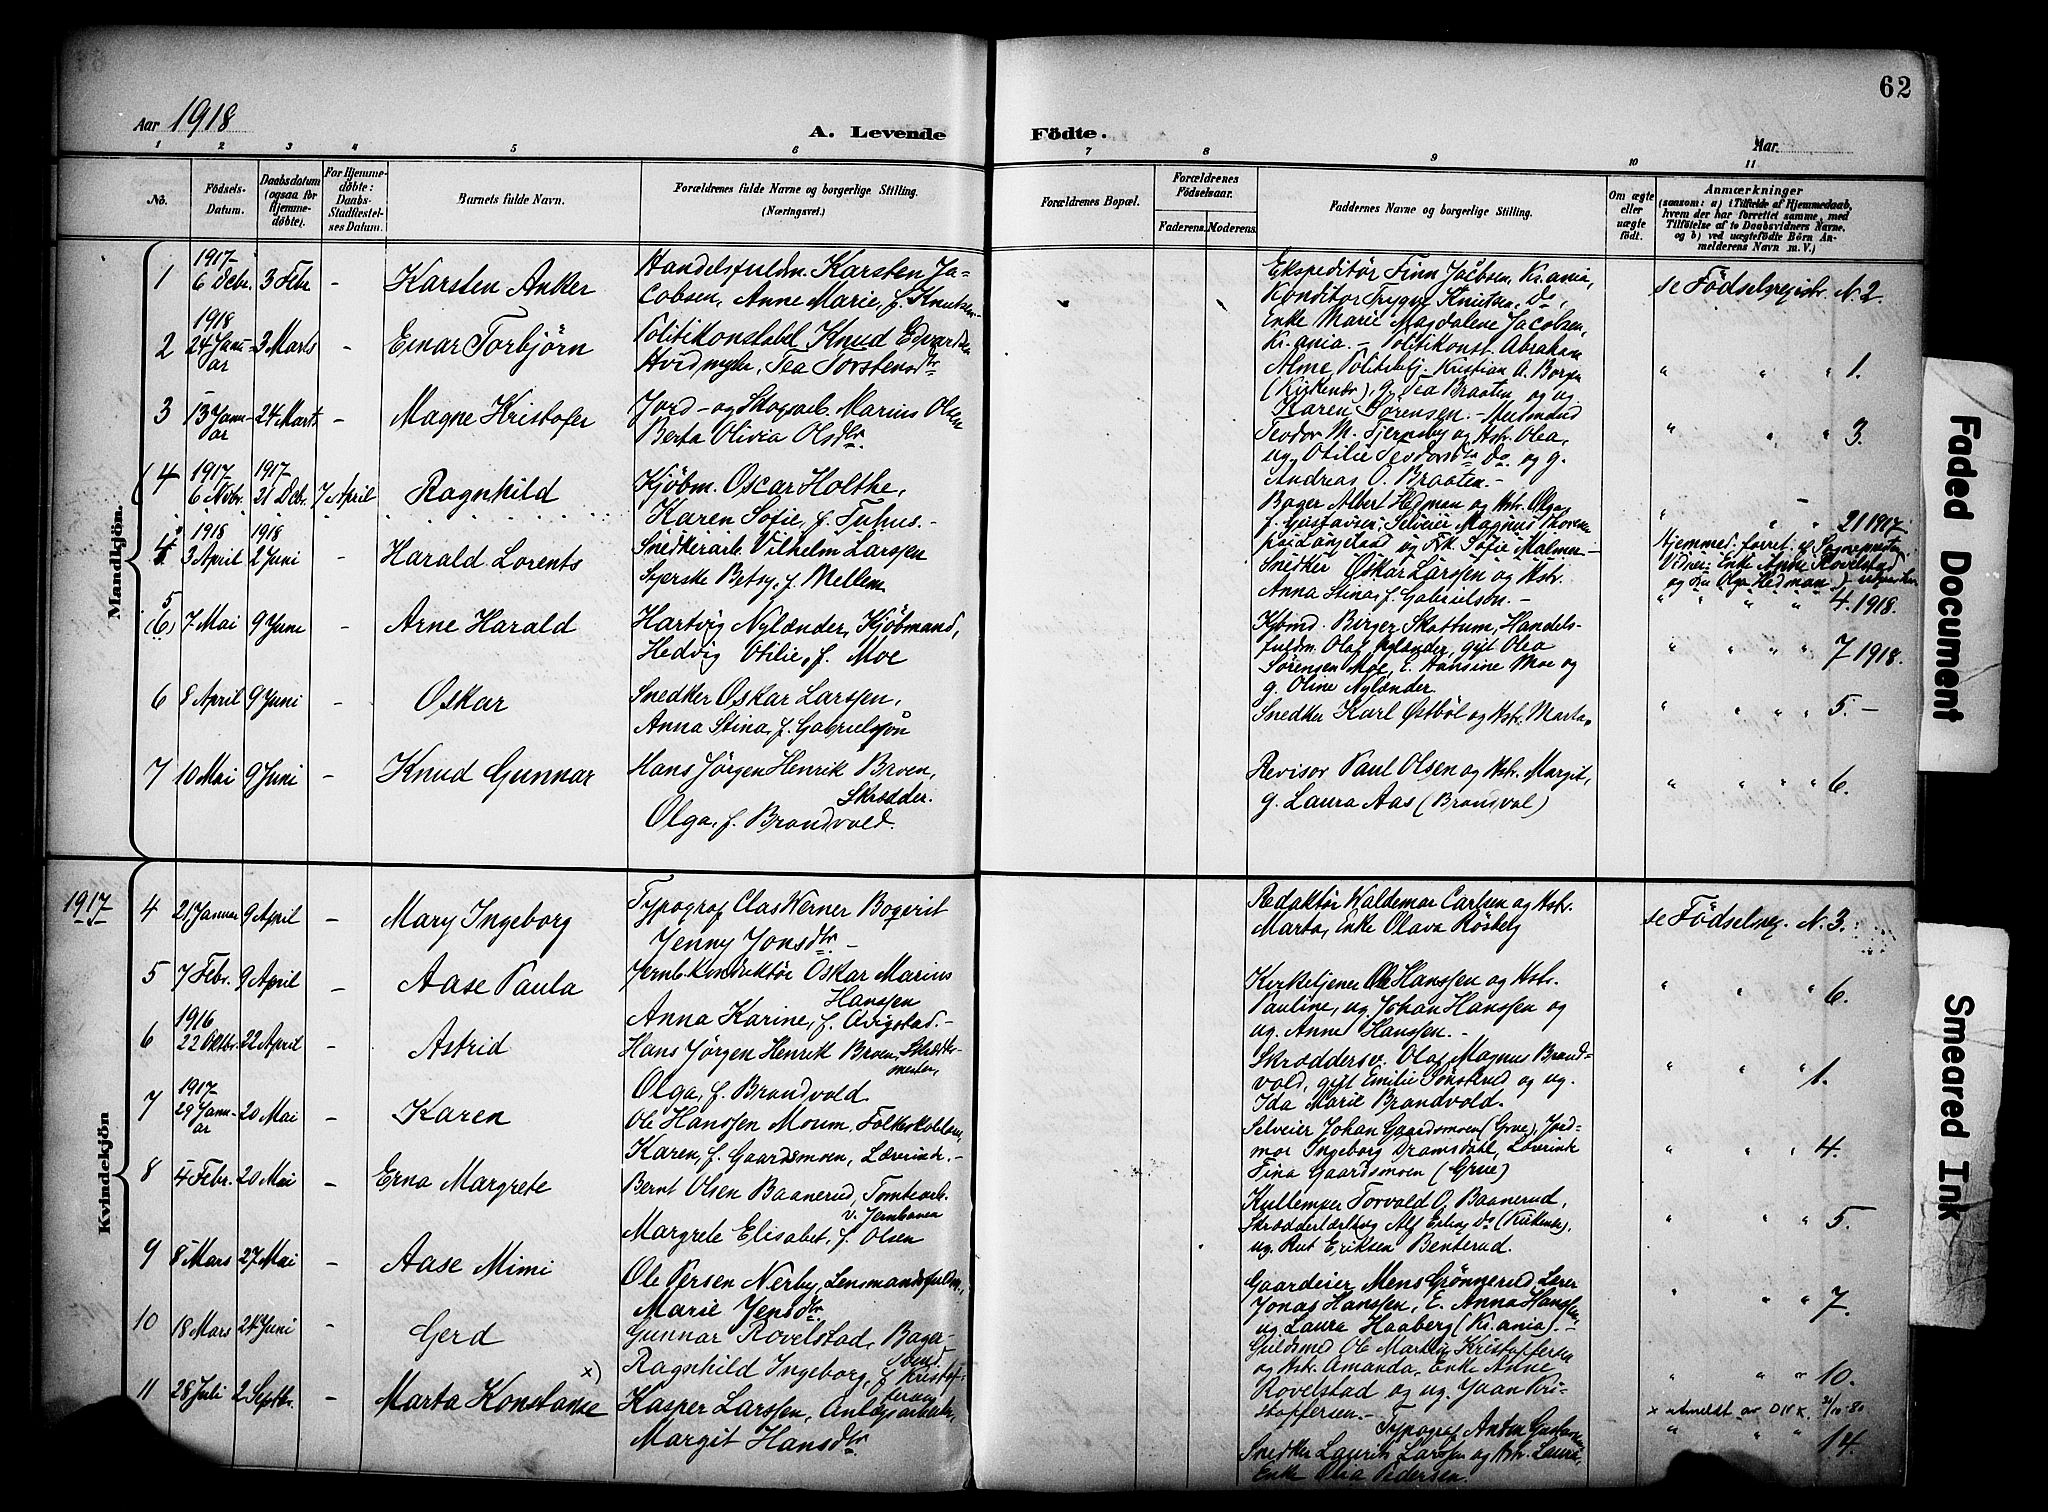 62
Aar 1918
A. Levende Födte.
Aar
1 2 3 4 5 6 7 8 9 10 11
No.
Födsels-Datum.
Daabsdatum (ogsaa for Hjemmedöbte).
For Hjemmedöbte: Daabs-Stadfæstelses Datum.
Barnets fulde Navn.
Forældrenes fulde Navne og borgerlige Stilling. (Næringsvei.)
Forældrenes Bopæl.
Forældrenes Födselsaar.
Faderens. Moderens.
Faddernes Navne og borgerlige Stilling.
Om ægte eller uægte födt.
Anmærkninger
(saasom: a) i Tilfælde af Hjemmedaab,
hvem der har forrettet samme, med
Tilföielse af to Daabsvidners Navne,
og b) ved uægtefödte Börn Anmelderens Navn m. V.)
Mandkjön.
1 1917 6 Dcbr. 3 Febr - Karsten Anker
Handelsfuldm. Karsten Jacobsen, Anne Marie, f. Knutsen
Ekspeditör Finn Jacobsen, Kr.ania,
Konditor Trygve Knutsen, do,
Enke Marie Magdalene Jacobsen,
Kr.ania. -
se Födselsregistr. N. 2.
2 1918 24 Januar 3 Marts - Einar Torbjörn
Politikonstabel Knud Edvardsen
Hvidmyhr, Tea Torstensdtr
Politikonst. Abraham
Alme, Politibetj. Kristian A. Borgen
(Kirkenær), g. Tea Braaten og ug.
Karen Sörensen. -
" " " 1.
3 13 Januar 24 Marts - Magne Kristofer
Jord- og Skogsarb. Marius Olsen
Berta Olivia Olsdtr.
Teodor M. Tjernsby og Hstr. Olea,
ug. Otilie Teodorsdtr do. og g.
Andreas O. Braaten. -
" " " 3.
(4 1917 6 Nvbr. 1917 21 Dcbr. 7 April Ragnhild
Kjöbm. Oscar Holthe,
Karen Sofie, f. Fuhus. -
Bager Albert Hedman og Hstr. Olga
f. Gustavsen, Selveier Magnus
og Frk. Sofie Malmer -
" " " 21 1917.
Hjemmed. forret. af Sognepresten
Vidner: Enke Anne Rovelstad
og Olga Hedman
4 1918 3 April 1918 2 Juni - Harald Lorents
Snedkerarb. Vilhelm Larssen
Syerske Betsy, f. Mellem
Snedker Oskar Larssen og Hstr.
Anna Stina, f. Gabrielson. -
" " " 4. 1918.
5 (6) 7 Mai 9 Juni - Arne Harald
Hartvig Nylænder, Kjöbmand,
Hedvig Otilie, f. Moe
Kjbmd. Birger Skattum, Handels-
fuldm. Olaf Nylænder, gift Olea
Sörensen Moe, E. Hansine Moe og
g. Oline Nylænder.
" " " 7 1918.
6 8 April 9 Juni - Oskar
Snedker Oskar Larssen,
Anna Stina, f. Gabrielson
Snedker Karl Östböl og Hstr. Marta,
" " " 5. -
7 10 Mai 9 Juni - Knud Gunnar
Hans Jörgen Henrik Bven,
Skrædder.
Olga, f. Brandvold.
Revisor Paul Olsen og Hstr. Margit,
g. Laura Aas (Brandval)
" " " 6.
1917
Kvindekjön
4 21 Januar 9 April - Mary Ingeborg
Typograf Clas Verner Bogevist
Jenny Jonsdtr. -
Redaktör Valdemar Carlsen og Hstr.
Marta, Enke Olava Rösberg
se Födselsreg. N. 3.
5 7 Febr. 9 April - Aase Paula
Jernb. Konduktör Oskar Marius
Hanssen
Anna Karine, f. Avigstad. -
Kirketjener Ole Hanssen og Hstr.
Pauline, ug. Johan Hanssen og
ug. Anne Hanssen. -
" " " 6.
6 1916 22 Oktbr. 22 April - Astrid
Hans Jörgen Henrik Bven, Skrædder-
mester,
Olga, f. Brandvold.
Skræddersv. Olaf Magnus Brand-
vold, gift Emilie Sönsterud og ug.
Ida Marie Brandvold.
" " " 1.
7 1917 29 Januar 20 Mai - Karen
Ole Hanssen Moum, Folkeskolelærer,
Karen, f. Gaardsmoen, Lærerinde. -
Selveier Johan Gaardsmoen (Grue), Jord-
mor Ingeborg Dramsdahl, Lærerinde
Tina Gaardsmoen (Grue)
" " " 4.
8 4 Febr. 20 Mai - Erna Margrete
Bernt Olsen Baanerud, Tomtearb.
v. Jernbanen
Margrete Elisabet, f. Olsen
Torvald O. Baanerud,
Skrædderlærling Alf Erling do (Kirkenær),
ug. Rut Eriksen Benterud.
" " " 5.
9 8 Mars 27 Mai - Aase Mimi
Ole Persen Nerby, Lensmandsfuldm.,
Marie Jensdtr
Gaardeier Mens Grönnerud, Lærer
Jonas Hanssen, E. Anna Hanssen,
ug. Laura Haaberg (Kr.ania). -
" " " 7.
10 18 Mars 24 Juni - Gerd
Gunnar Rovelstad, Bager-
svend.
Ragnhild Ingeborg, f. Kristof-
fersen
Guldsmed Ole Martin Kristoffersen
og Hstr. Amanda, Enke Anne
Rovelstad og ug. Johan Kri-
stoffersen. -
" " " 10.
11 28 Juli 2 Septbr. - Marta Konstanse x)
Kasper Larssen, Anlægsarbeider,
Margit Hansdtr.
Typograf Anton Gustavsen
Snedker Laurits Larssen og Hstr. Laura,
Enke Olia Pedersen.
x utmeldt av DNK. 21/10-80
" " " 14.
Faded Document
Smeared Ink